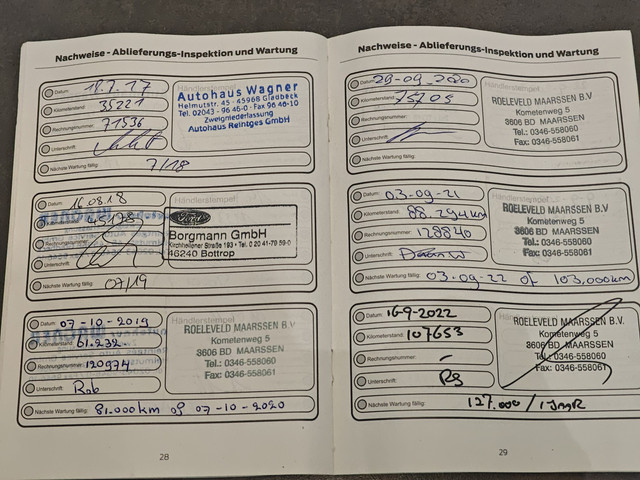 Nachweise - Ablieferungs-Inspektion und Wartung
Datum: 18.7.17
Kilometerstand: 35221
Rechnungsnummer: 71536
Unterschrift:
Nächste Wartung fällig: 7/18
Autohaus Wagner
Helmutstr. 45 · 45968 Gladbeck
Tel. 02043 - 96 46-0 · Fax 96 46-10
Zweigniederlassung
Autohaus Reintges GmbH
Datum: 16.08.18
Kilometerstand: 45198
Unterschrift:
Nächste Wartung fällig: 07/19
Händlerstempel
Ford
Borgmann GmbH
Kirchhellener Straße 193 • Tel. 0 20 41-79 59-0
46240 Bottrop
Datum: 07-10-2019
Kilometerstand: 61.232
Rechnungsnummer: 120974
Unterschrift: Rob
Nächste Wartung fällig: 81.000km of 07-10-2020
Händlerstempel
ROELEVELD MAARSSEN B.V.
Kometenweg 5
3606 BD MAARSSEN
Tel.: 0346-558060
Fax: 0346-558061
28
Nachweise - Ablieferungs-Inspektion und Wartung
Datum: 29-09-2020
Kilometerstand: 75705
Rechnungsnummer:
Unterschrift:
Nächste Wartung fällig:
Händlerstempel
ROELEVELD MAARSSEN B.V
Kometenweg 5
3606 BD MAARSSEN
Tel.: 0346-558060
Fax: 0346-558061
Datum: 03-09-21
Kilometerstand: 88.294km
Rechnungsnummer: 128840
Unterschrift:
Nächste Wartung fällig: 03-09-22 of 103,000km
ROELEVELD MAARSSEN B.V
Kometenweg 5
3606 BD MAARSSEN
Tel.: 0346-558060
Fax: 0346-558061
Datum: 16-9-2022
Kilometerstand: 107653
Rechnungsnummer: -
Unterschrift: RS
Nächste Wartung fällig: 127.000 / 1 JAAR
ROELEVELD MAARSSEN B.V.
Kometenweg 5
3606 BD MAARSSEN
Tel.: 0346-558060
Fax: 0346-558061
29